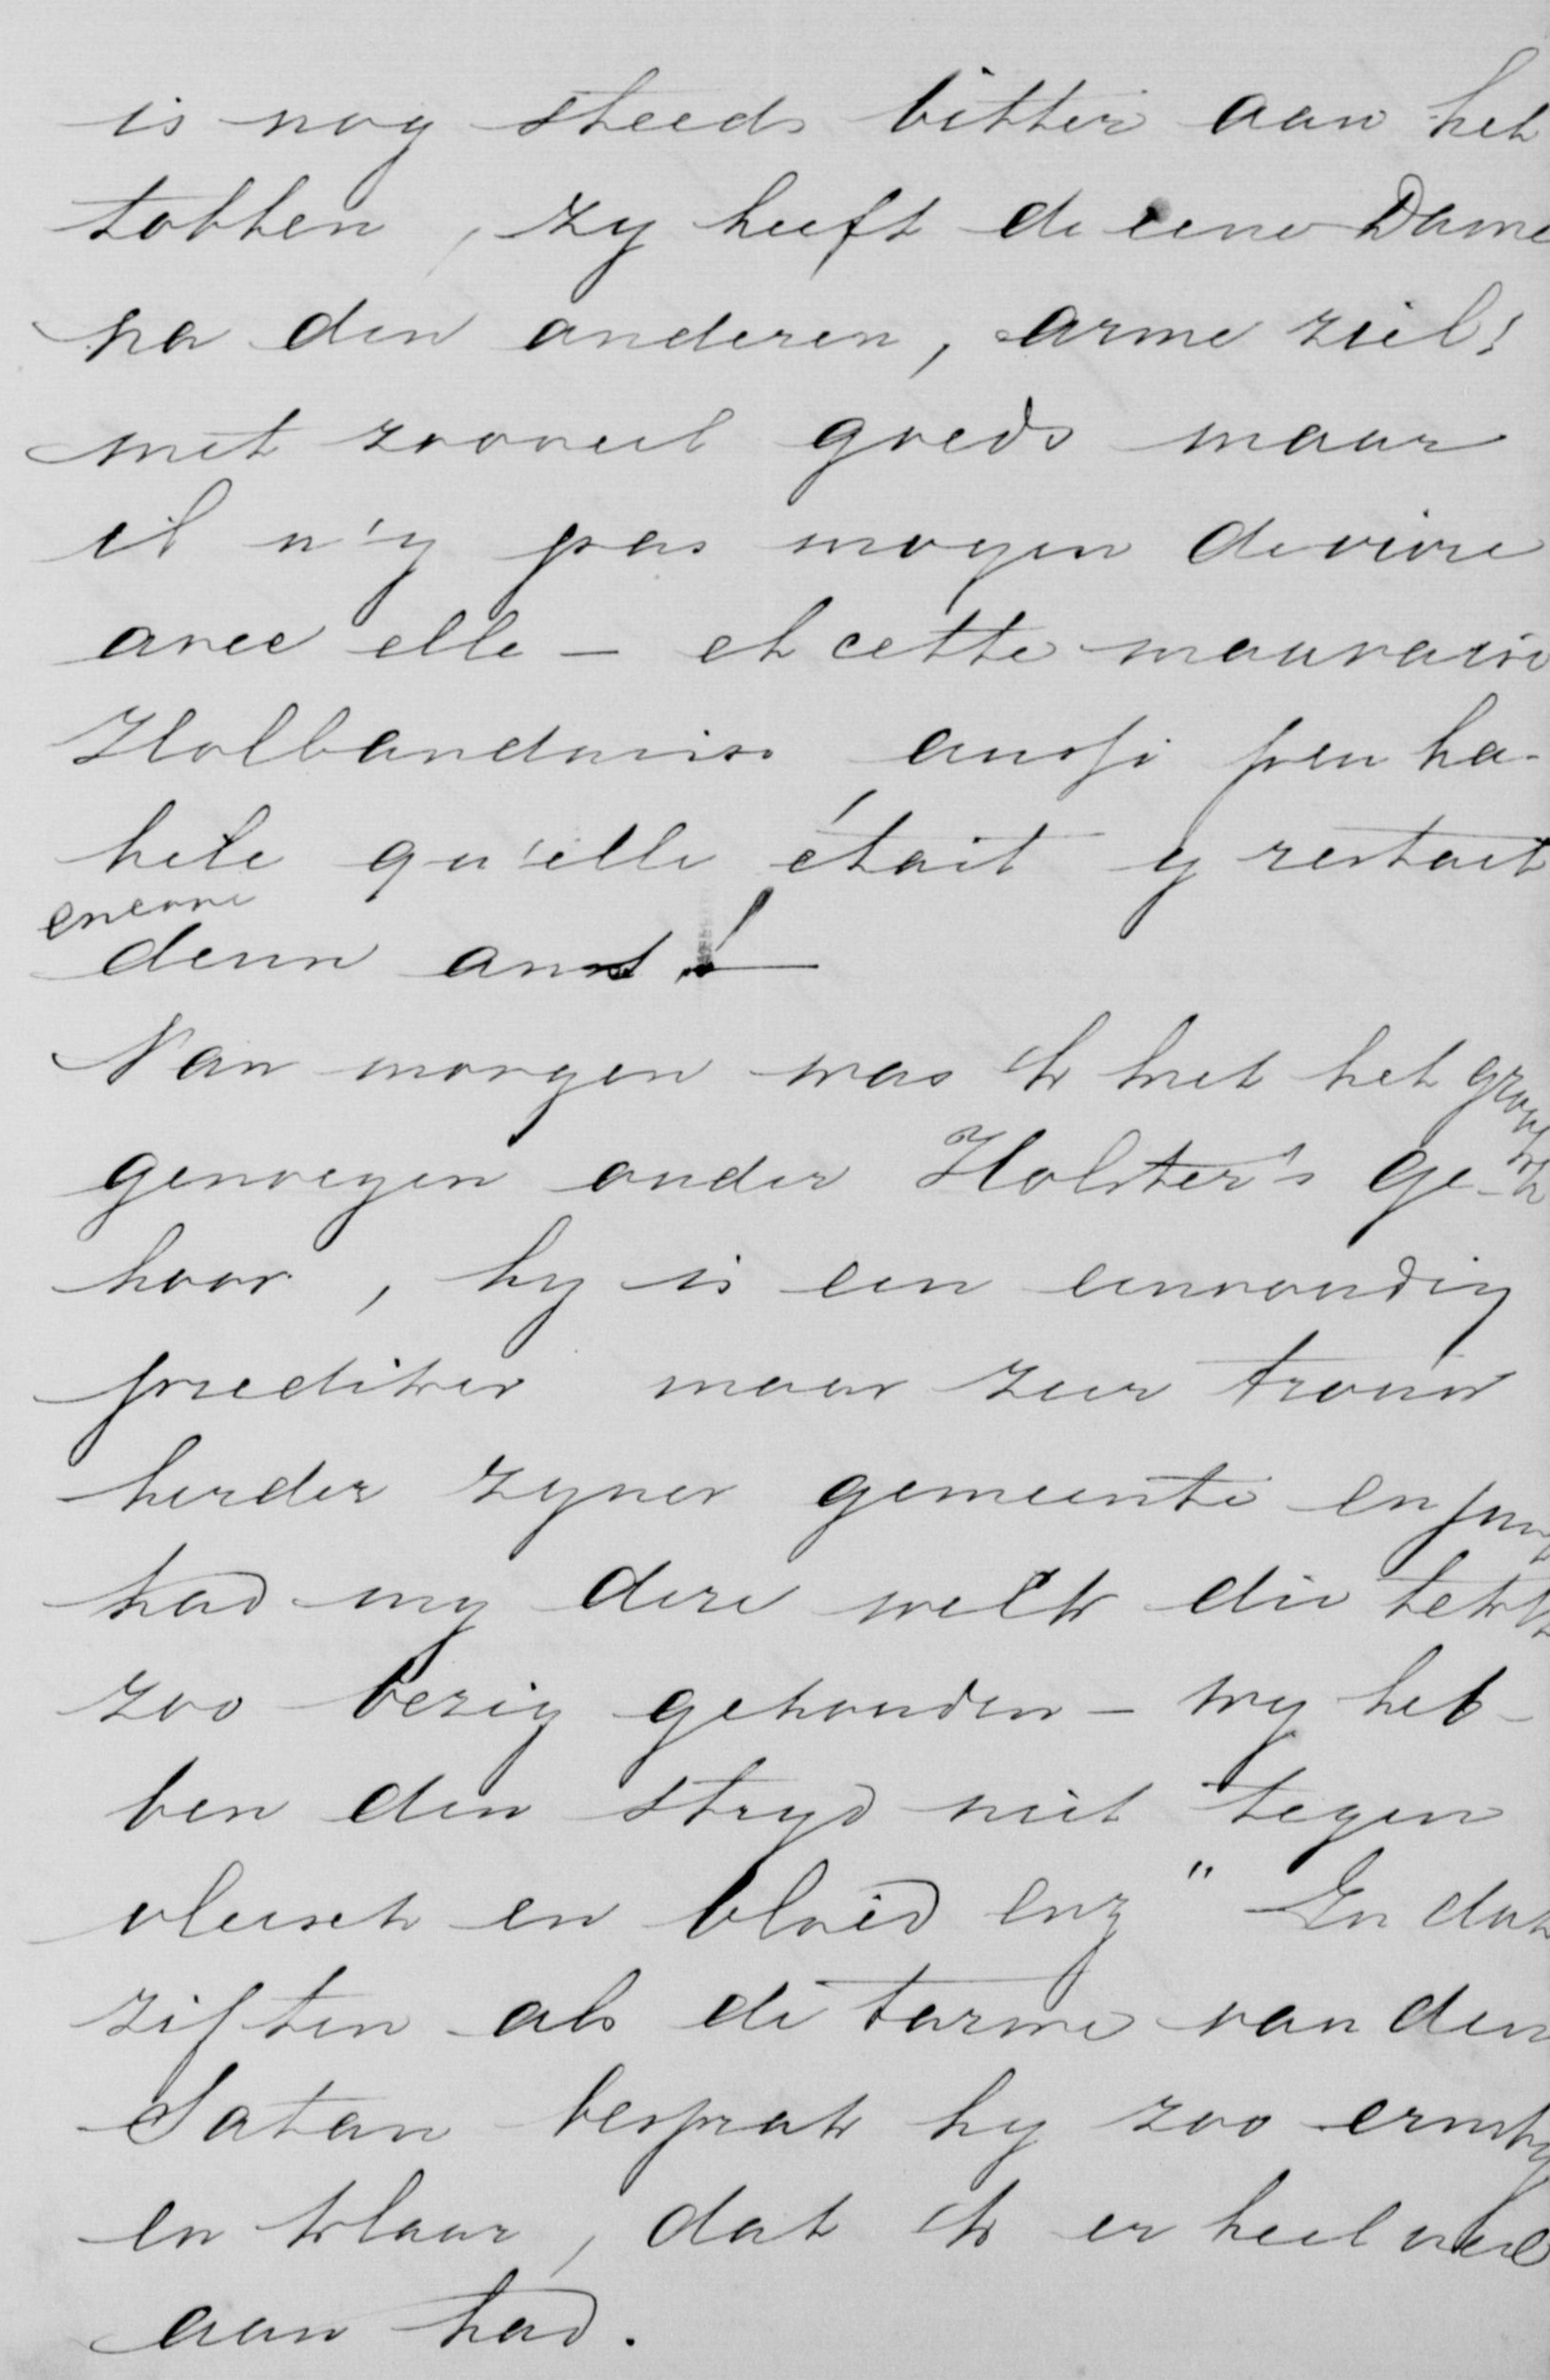 is nog steeds bitter aan het
tobben, zy heeft de eene Dame
na den anderen, arme ziel!
met zooveel goeds maar
il n'y pas moyen de vivre
avec elle – et cette mauvaise
Hollandaise aussi peu ha-
bile qu'elle était y restait
encore
deux ans! –
Van morgen was ik met het groot
genoegen onder Holster's ge-
hoor, hy is een eenvoudig
prediker maar zeer trouw
herder zyner gemeente en juist
had my deze week die tekst
zoo bezig gehouden – wy heb-
ben den stryd niet tegen
vleesch en bloed enz" En dat
ziften als de tarwe van den
Satan besprak hy zoo ernstig
en klaar, dat ik er heel veel
aan had.